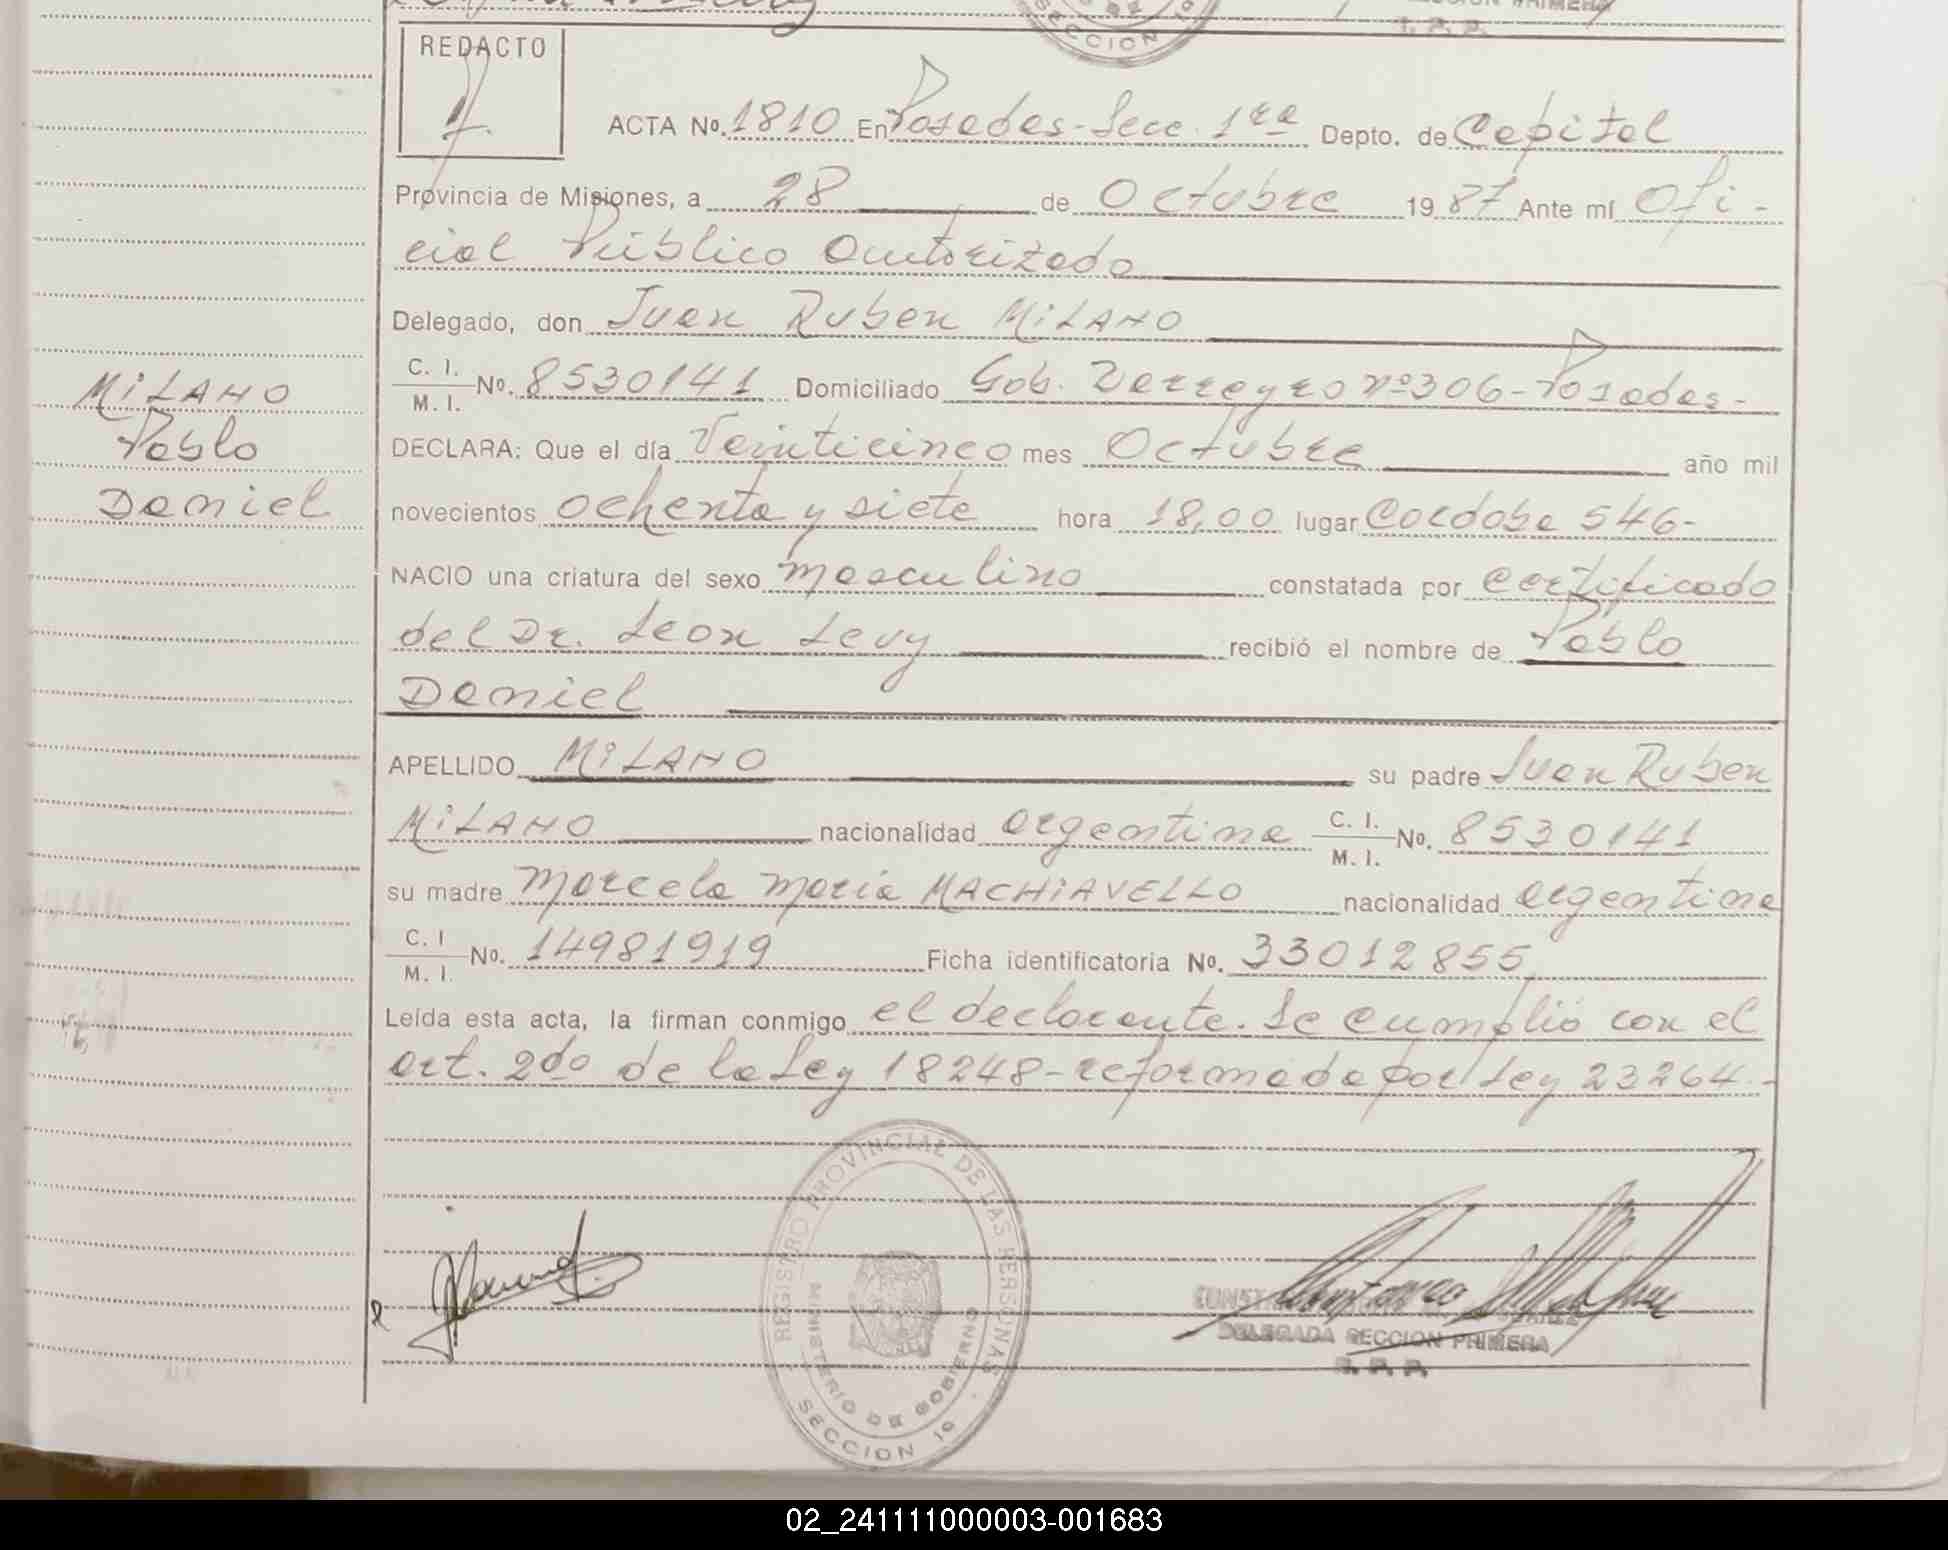 REDACTO
ACTA Nº. 1810 En Posadas - Secc. 1ra Depto. de Capital
Provincia de Misiones, a 28 de Octubre 1987 Ante mí Ofi-
cial Público Autorizado
Delegado, don Juan Ruben MiLANO
C. I.
M. I. Nº. 8530141 Domiciliado Gob. Barreyro nº 306 - Posadas -
MiLANO
Pablo
Daniel
DECLARA: Que el día Veinticinco mes Octubre año mil
novecientos ochenta y siete hora 18,00 lugar Cordoba 546-
NACIO una criatura del sexo masculino constatada por certificado
del Dr. Leon Levy recibió el nombre de Pablo
Daniel
APELLIDO MiLANO su padre Juan Ruben
MiLANO nacionalidad argentina C. I.
M. I. Nº. 8530141
su madre Marcela María MACHiAVELLO nacionalidad argentina
C. I
M. I. Nº. 14981919 Ficha identificatoria Nº. 33012855
Leída esta acta, la firman conmigo el declarante. Se cumplió con el
art. 2do de la Ley 18248 - reformada por Ley 23264.-
REGISTRO PROVINCIAL DE LAS PERSONAS
MINISTERIO DE GOBIERNO
SECCION 1º
DELEGADA SECCION PRIMERA
R. P. P.
02_241111000003-001683